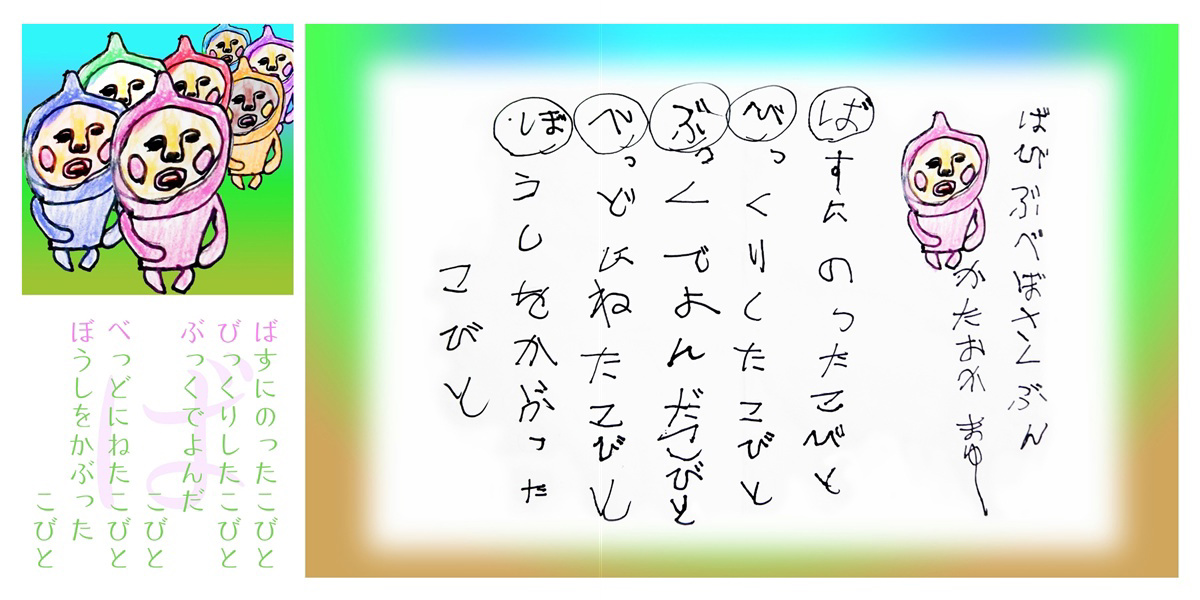 ばびぶべぼさくぶん
かたおか まゆー
ばすにのったこびと
びっくりしたこびと
ぶっくでよんだこびと
べっどにねたこびと
ぼうしをかぶった
こびと
ば
ばすにのったこびと
びっくりしたこびと
ぶっくでよんだ
こびと
べっどにねたこびと
ぼうしをかぶった
こびと